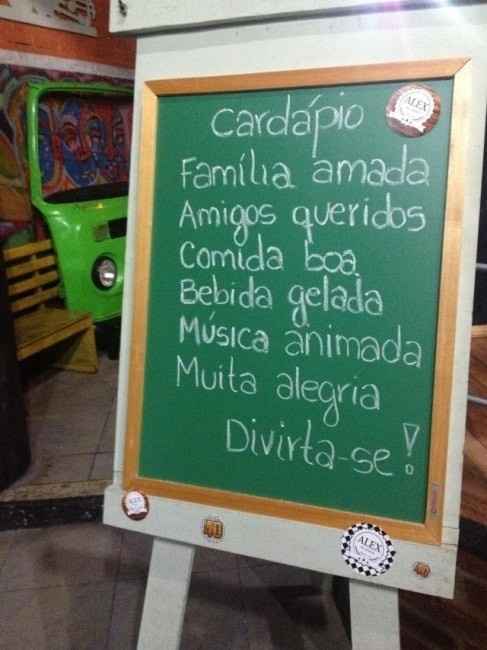 Cardápio
ALEX
Família amada
Amigos queridos
Comida boa
Bebida gelada
Música animada
Muita alegria
Divirta-se!
ALEX
40
ALEX
40